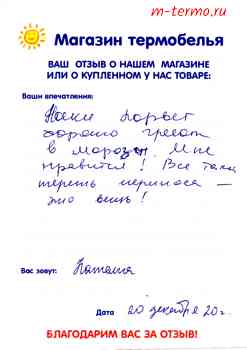 m-termo.ru
Магазин термобелья
ВАШ ОТЗЫВ О НАШЕМ МАГАЗИНЕ
ИЛИ О КУПЛЕННОМ У НАС ТОВАРЕ:
Ваши впечатления:
Носки Норвег
хорошо греют
в морозы. Мне
нравится! Все таки
шерсть мериноса –
это вещь!
Вас зовут: Наталия
Дата 20 декабря 20 г.
БЛАГОДАРИМ ВАС ЗА ОТЗЫВ!